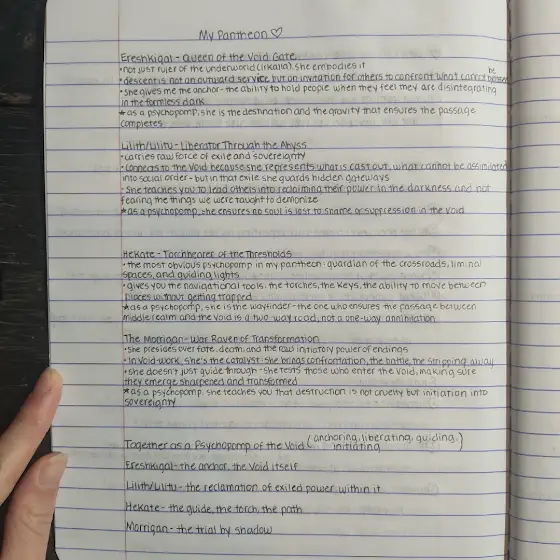 My Pantheon ♡
Ereshkigal - Queen of the Void Gate
• not just ruler of the underworld (irkalla), she embodies it
• descent is not an outward service but an invitation for others to confront what cannot be
• she gives me the anchor - the ability to hold people when they feel they are disintegrating
in the formless dark
* as a psychopomp, she is the destination and the gravity that ensures the passage
completes
Lilith/Lilitu - Liberator Through the Abyss
• carries raw force of exile and sovereignty
• connects to the Void because she represents what is cast out, what cannot be assimilated
into social order - but in that exile she guards hidden gateways
• She teaches you to lead others into reclaiming their power in the darkness and not
fearing the things we were taught to demonize
* as a psychopomp, she ensures no soul is lost to shame or suppression in the void
Hekate - Torchbearer of the Thresholds
• the most obvious psychopomp in my pantheon - guardian of the crossroads, liminal
spaces, and guiding lights
• gives you the navigational tools: the torches, the keys, the ability to move between
places without getting trapped
* as a psychopomp, she is the wayfinder - the one who ensures the passage between
middle realm and the void is a two-way road, not a one-way annihilation
The Morrigan - War Raven of Transformation
• She presides over fate, death, and the raw initiatory power of endings
• in Void-work, she's the catalyst: she brings confrontation, the battle, the stripping away
• she doesn't just guide through - she tests those who enter the void, making sure
they emerge sharpened and transformed
* as a psychopomp, she teaches you that destruction is not cruelty but initiation into
sovereignty
Together as a Psychopomp of the Void (anchoring, liberating, guiding,
initiating)
Ereshkigal - the anchor, the Void itself
Lilith/Lilitu - the reclamation of exiled power within it
Hekate - the guide, the torch, the path
Morrigan - the trial by shadow